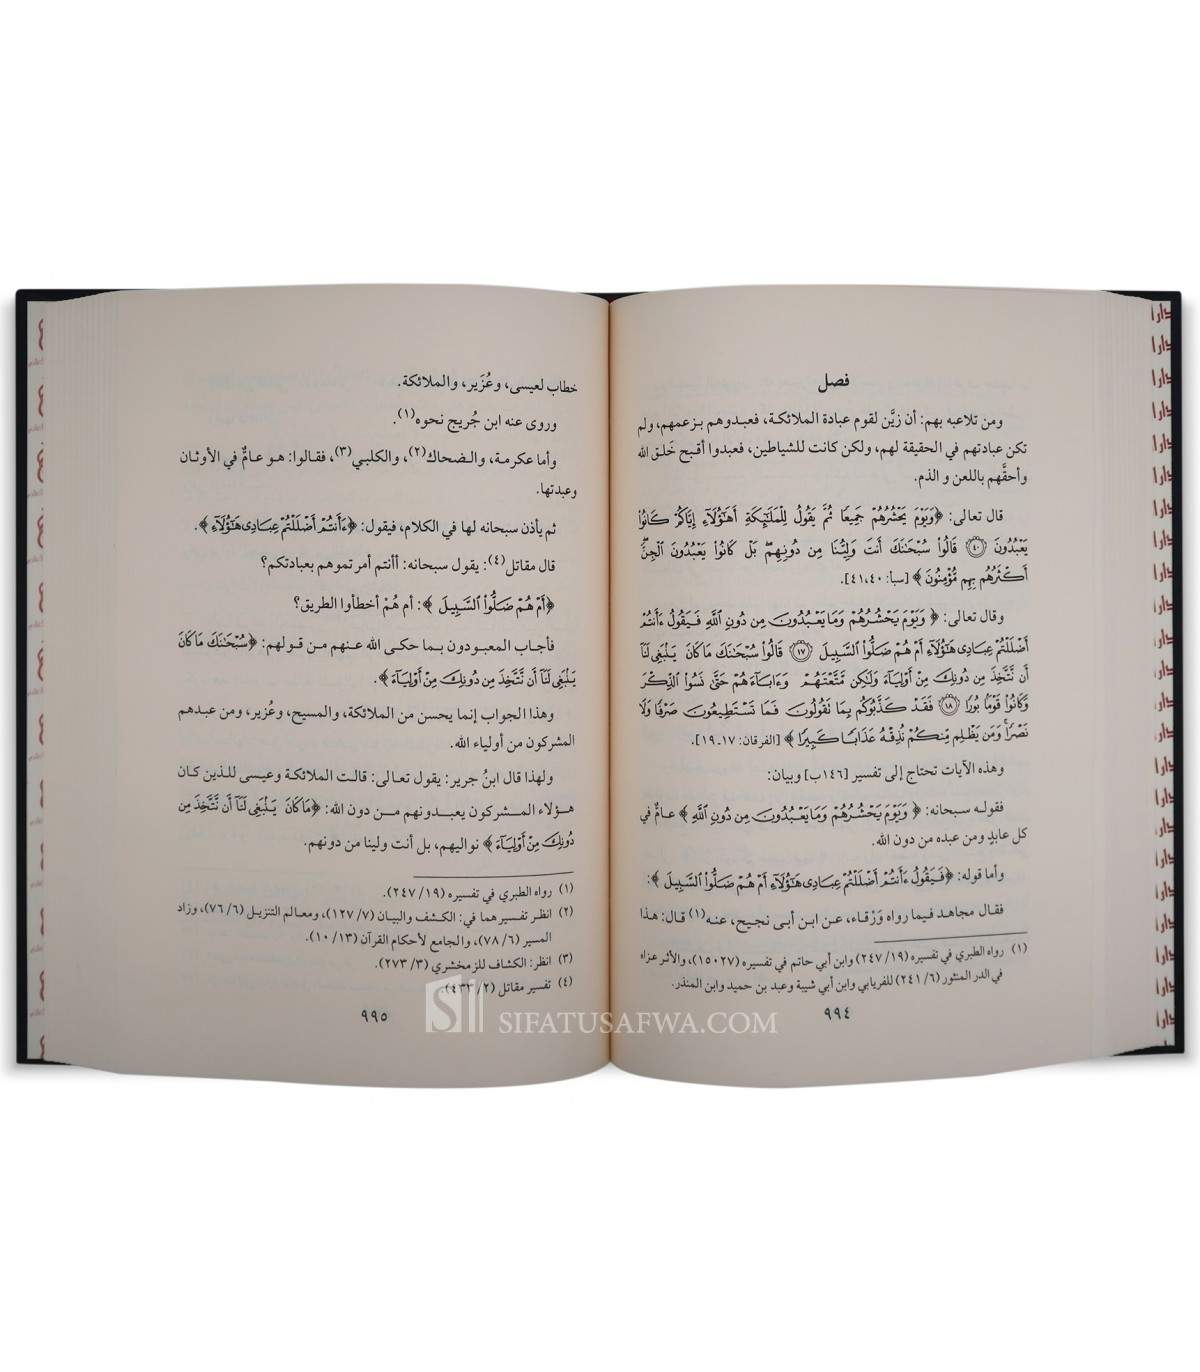 فصل
ومن تلاعبه بهم: أن زيَّن لقوم عبادة الملائكة، فعبدوهم بزعمهم، ولم
تكن عبادتهم في الحقيقة لهم، ولكن كانت للشياطين، فعبدوا أقبح خَلق الله
وأحقَّهم باللعن و الذم.
قال تعالى: ﴿وَيَوْمَ يَحْشُرُهُمْ جَمِيعًا ثُمَّ يَقُولُ لِلْمَلَٰٓئِكَةِ أَهَٰٓؤُلَآءِ إِيَّاكُمْ كَانُوا۟
يَعْبُدُونَ ۝٤٠ قَالُوا۟ سُبْحَٰنَكَ أَنتَ وَلِيُّنَا مِن دُونِهِم ۖ بَلْ كَانُوا۟ يَعْبُدُونَ ٱلْجِنَّ ۖ
أَكْثَرُهُم بِهِم مُّؤْمِنُونَ﴾ [سبأ: ٤٠، ٤١].
وقال تعالى: ﴿وَيَوْمَ يَحْشُرُهُمْ وَمَا يَعْبُدُونَ مِن دُونِ ٱللَّهِ فَيَقُولُ ءَأَنتُمْ
أَضْلَلْتُمْ عِبَادِى هَٰٓؤُلَآءِ أَمْ هُمْ ضَلُّوا۟ ٱلسَّبِيلَ ۝١٧ قَالُوا۟ سُبْحَٰنَكَ مَا كَانَ يَنۢبَغِى لَنَآ
أَن نَّتَّخِذَ مِن دُونِكَ مِنْ أَوْلِيَآءَ وَلَٰكِن مَّتَّعْتَهُمْ وَءَابَآءَهُمْ حَتَّىٰ نَسُوا۟ ٱلذِّكْرَ
وَكَانُوا۟ قَوْمًۢا بُورًا ۝١٨ فَقَدْ كَذَّبُوكُم بِمَا تَقُولُونَ فَمَا تَسْتَطِيعُونَ صَرْفًا وَلَا
نَصْرًا ۚ وَمَن يَظْلِم مِّنكُمْ نُذِقْهُ عَذَابًا كَبِيرًا﴾ [الفرقان: ١٧ـ١٩].
وهذه الآيات تحتاج إلى تفسير [١٤٦ب] وبيان:
فقوله سبحانه: ﴿وَيَوْمَ يَحْشُرُهُمْ وَمَا يَعْبُدُونَ مِن دُونِ ٱللَّهِ﴾ عامٌّ في
كل عابدٍ ومن عبده من دون الله.
وأما قوله: ﴿فَيَقُولُ ءَأَنتُمْ أَضْلَلْتُمْ عِبَادِى هَٰٓؤُلَآءِ أَمْ هُمْ ضَلُّوا۟ ٱلسَّبِيلَ﴾:
فقال مجاهد فيما رواه وَرْقاء، عن ابن أبي نجيح، عنه(١) قال: هذا
(١) رواه الطبري في تفسيره (١٩/ ٢٤٧) وابن أبي حاتم في تفسيره (١٥٠٢٧)، والأثر عزاه
في الدر المنثور (٦/ ٢٤١) للفريابي وابن أبي شيبة وعبد بن حميد وابن المنذر.
٩٩٤
خطاب لعيسى، وعُزَير، والملائكة.
وروى عنه ابن جُريج نحوه(١).
وأما عكرمة، والضحاك(٢)، والكلبي(٣)، فقالوا: هو عامٌّ في الأوثان
وعبدتها.
ثم يأذن سبحانه لها في الكلام، فيقول: ﴿ءَأَنتُمْ أَضْلَلْتُمْ عِبَادِى هَٰٓؤُلَآءِ﴾.
قال مقاتل(٤): يقول سبحانه: أأنتم أمرتموهم بعبادتكم؟
﴿أَمْ هُمْ ضَلُّوا۟ ٱلسَّبِيلَ﴾: أم هُمْ أخطأوا الطريق؟
فأجاب المعبودون بما حكى الله عنهم من قولهم: ﴿سُبْحَٰنَكَ مَا كَانَ
يَنۢبَغِى لَنَآ أَن نَّتَّخِذَ مِن دُونِكَ مِنْ أَوْلِيَآءَ﴾.
وهذا الجواب إنما يحسن من الملائكة، والمسيح، وعُزير، ومن عبدهم
المشركون من أولياء الله.
ولهذا قال ابنُ جرير: يقول تعالى: قالت الملائكة وعيسى للذين كان
هؤلاء المشركون يعبدونهم من دون الله: ﴿مَا كَانَ يَنۢبَغِى لَنَآ أَن نَّتَّخِذَ مِن
دُونِكَ مِنْ أَوْلِيَآءَ﴾ نواليهم، بل أنت ولينا من دونهم.
(١) رواه الطبري في تفسيره (١٩/ ٢٤٧).
(٢) انظر تفسيرهما في: الكشف والبيان (٧/ ١٢٧)، ومعالم التنزيل (٦/ ٧٦)، وزاد
المسير (٦/ ٧٨)، والجامع لأحكام القرآن (١٣/ ١٠).
(٣) انظر: الكشاف للزمخشري (٣/ ٢٧٣).
(٤) تفسير مقاتل (٢/ ٤٣٢).
٩٩٥
SIFATUSAFWA.COM